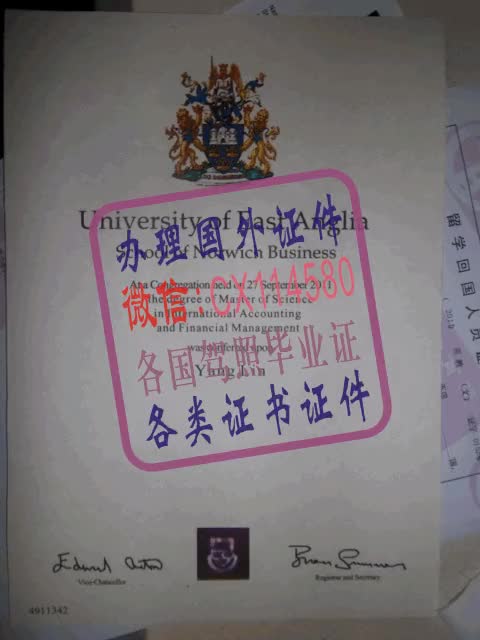 University of East Anglia
School of Norwich Business
At a Congregation held on 27 September 2011
the degree of Master of Science
in International Accounting
and Financial Management
was conferred upon
Yang Lin
办理国外证件
微信:CX114580
各国驾照毕业证
各类证书证件
Vice-Chancellor
Registrar and Secretary
4911342
留学回国人员证